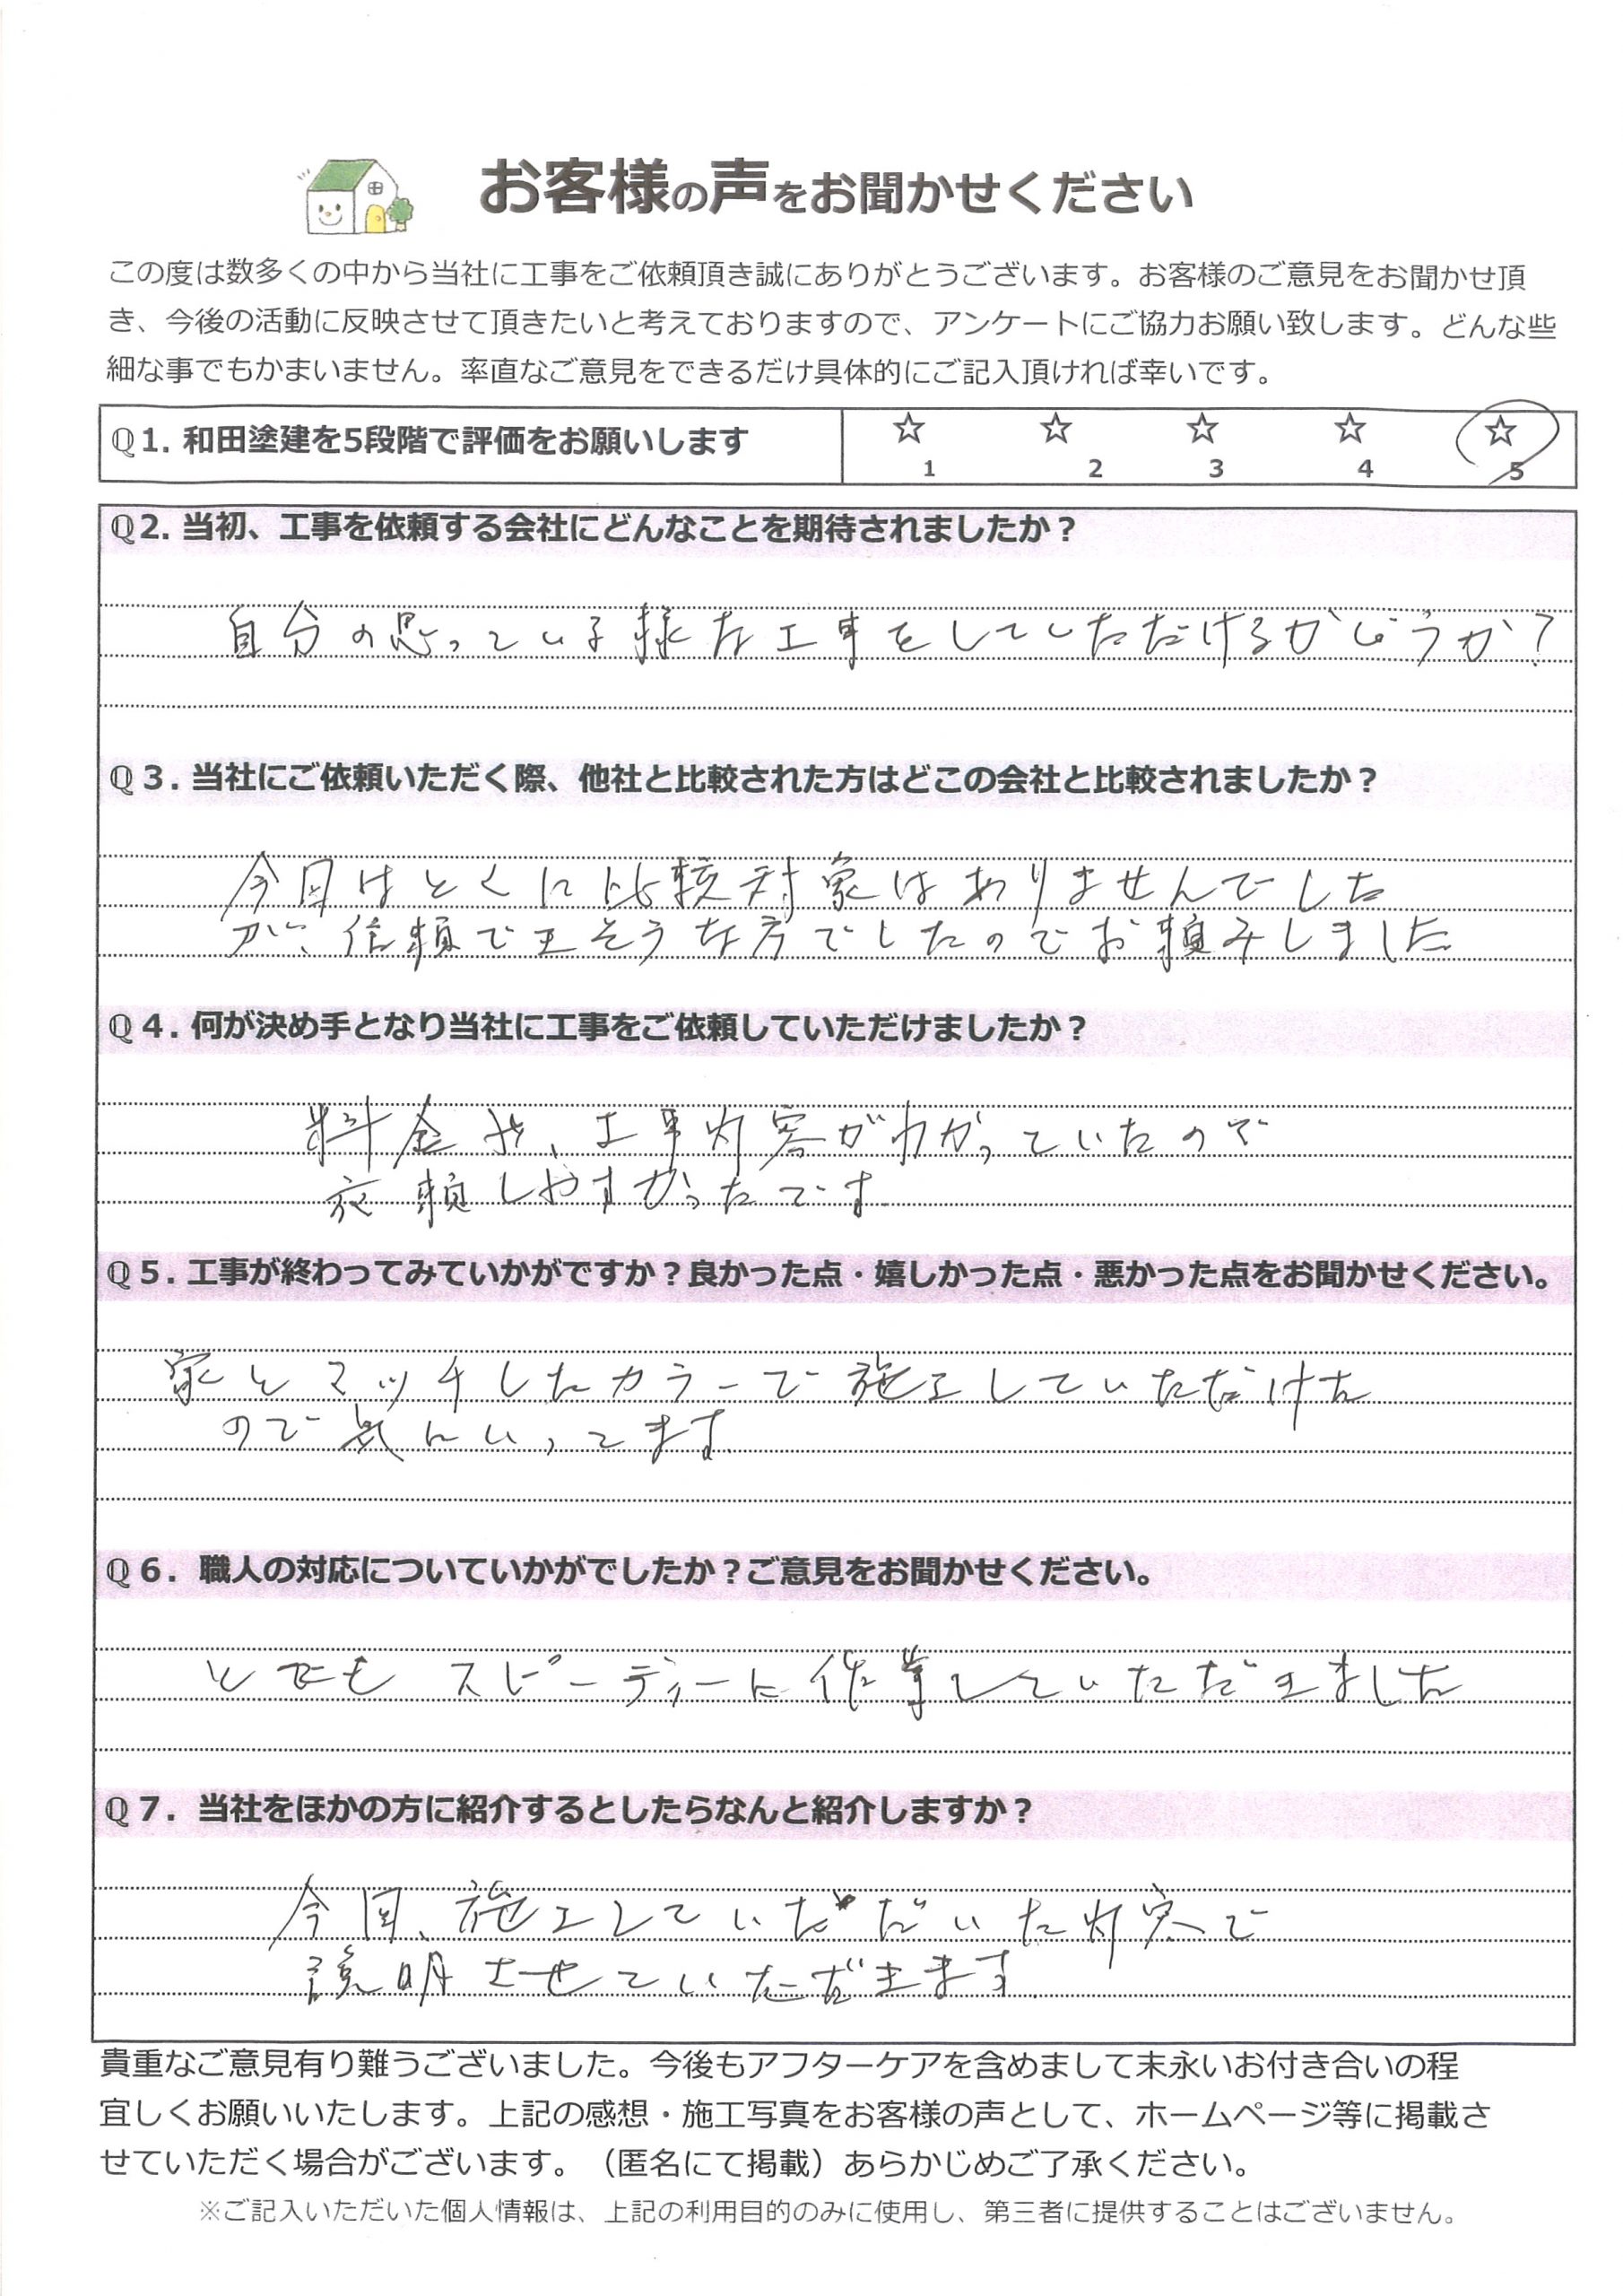 お客様の声をお聞かせください
この度は数多くの中から当社に工事をご依頼頂き誠にありがとうございます。お客様のご意見をお聞かせ頂
き、今後の活動に反映させて頂きたいと考えておりますので、アンケートにご協力お願い致します。どんな些
細な事でもかまいません。率直なご意見をできるだけ具体的にご記入頂ければ幸いです。
Q1. 和田塗建を5段階で評価をお願いします
☆ ☆ ☆ ☆ ☆
1 2 3 4 5
Q2. 当初、工事を依頼する会社にどんなことを期待されましたか？
自分の思っている様な工事をしていただけるかどうか？
Q3. 当社にご依頼いただく際、他社と比較された方はどこの会社と比較されましたか？
今回はとくに比較対象はありませんでした
が、信頼できそうな方でしたのでお頼みしました
Q4. 何が決め手となり当社に工事をご依頼していただけましたか？
料金や、工事内容がわかっていたので
依頼しやすかったです
Q5. 工事が終わってみていかがですか？良かった点・嬉しかった点・悪かった点をお聞かせください。
家とマッチしたカラーで施工していただけた
ので気にいってます
Q6. 職人の対応についていかがでしたか？ご意見をお聞かせください。
とてもスピーディーに作業していただきました
Q7. 当社をほかの方に紹介するとしたらなんと紹介しますか？
今回、施工していただいた内容で
説明させていただきます
貴重なご意見有り難うございました。今後もアフターケアを含めまして末永いお付き合いの程
宜しくお願いいたします。上記の感想・施工写真をお客様の声として、ホームページ等に掲載さ
せていただく場合がございます。（匿名にて掲載）あらかじめご了承ください。
※ご記入いただいた個人情報は、上記の利用目的のみに使用し、第三者に提供することはございません。